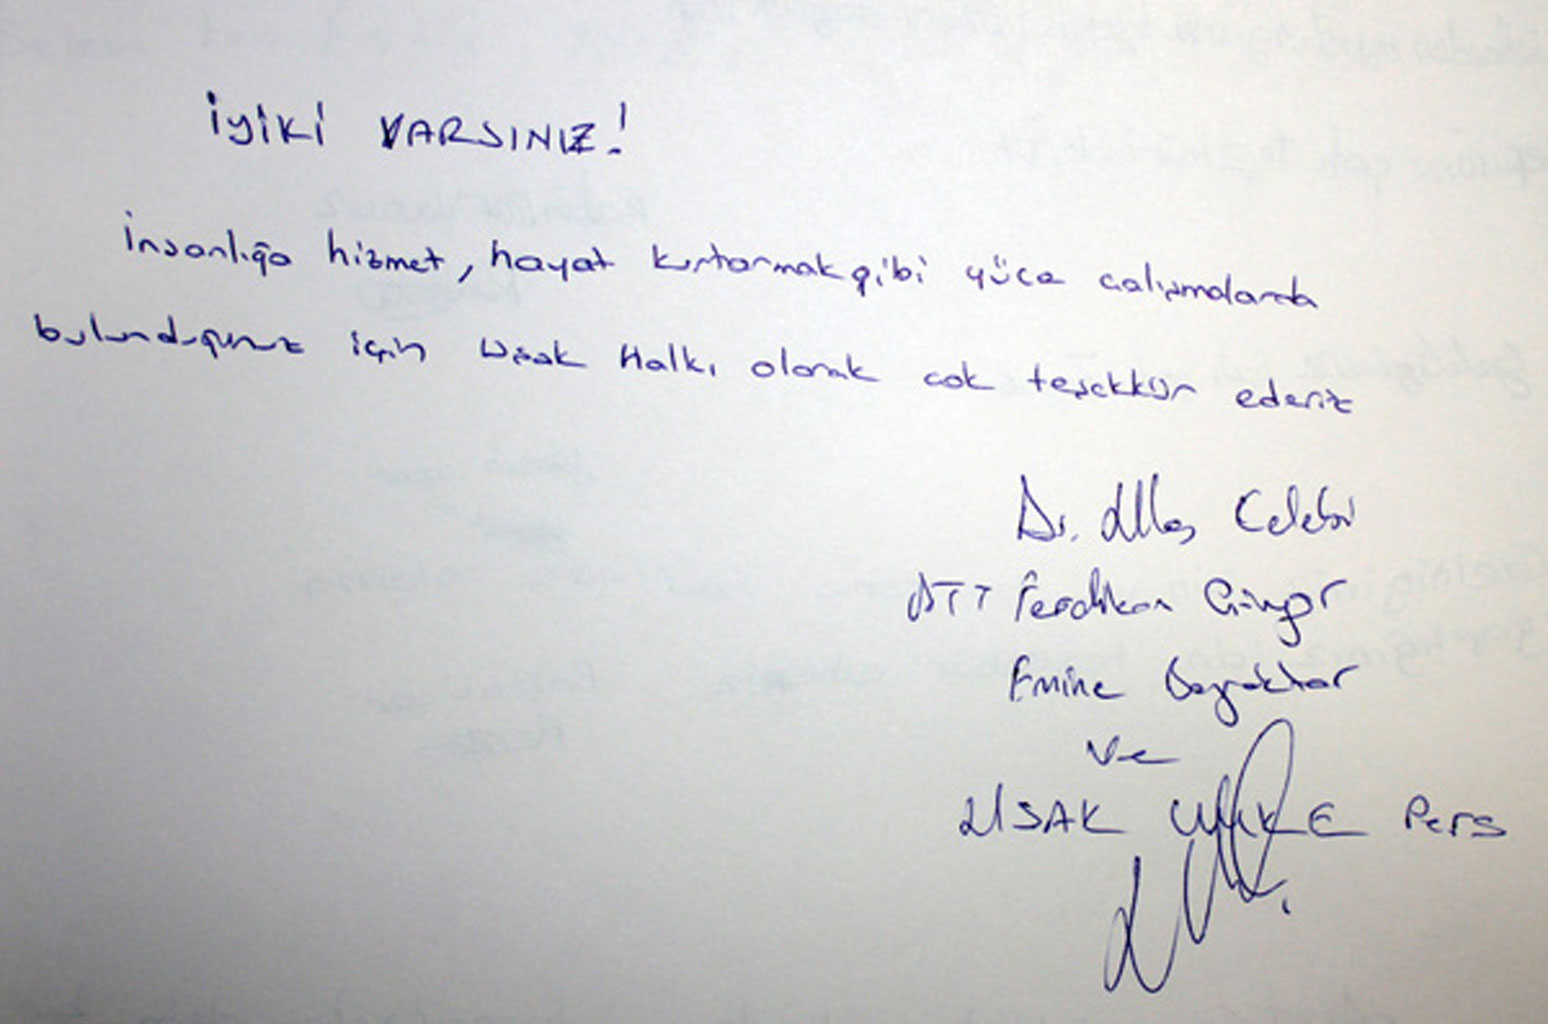 İyiki VARSINIZ!
İnsanlığa hizmet, hayat kurtarmak gibi yüce çalışmalarda
bulunduğunuz için Uşak Halkı olarak cok teşekkür ederiz
Dr. Ulaş Celebi
ATT Ferdikan Güngör
Emine Bayraktar
ve
USAK UMKE Pers